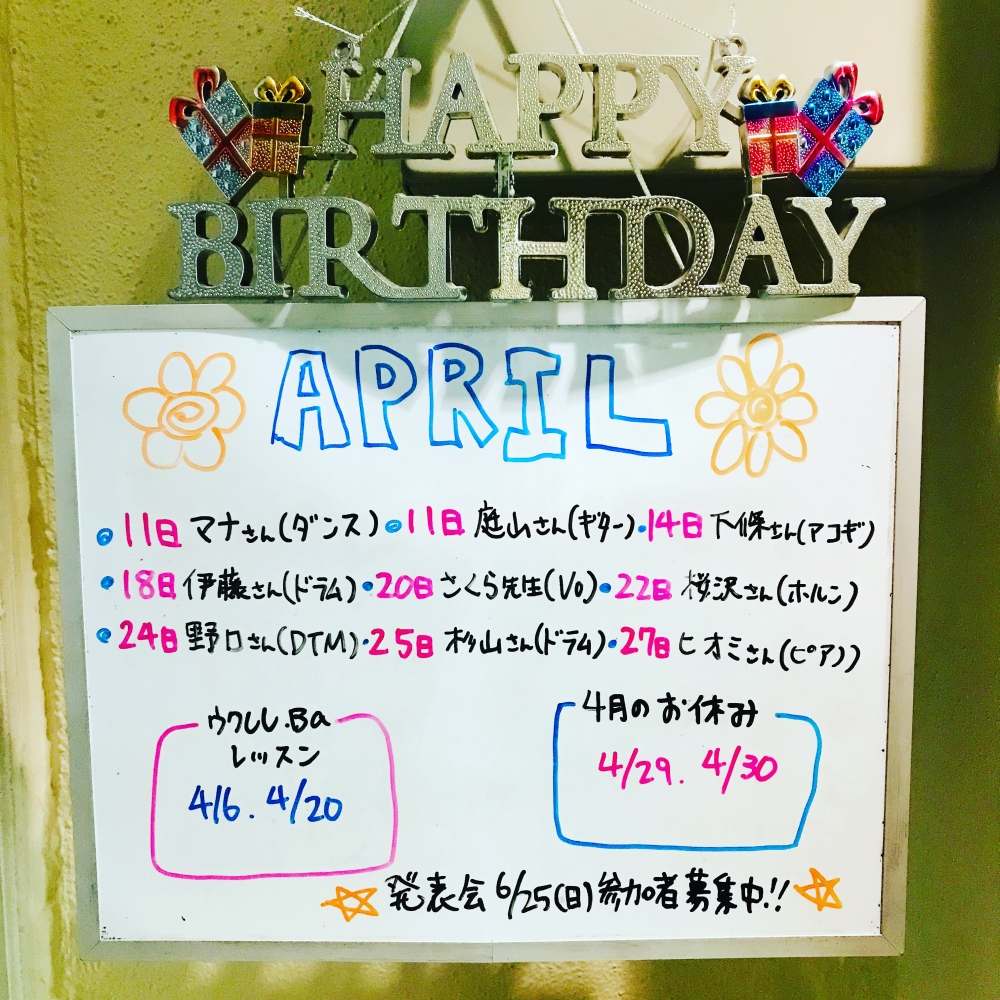 HAPPY
BIRTHDAY
APRIL
• 11日 マナさん(ダンス) • 11日 庭山さん(ギター) • 14日 下條さん(アコギ)
• 18日 伊藤さん(ドラム) • 20日 さくら先生(Vo) • 22日 桜沢さん(ホルン)
• 24日 野口さん(DTM) • 25日 杉山さん(ドラム) • 27日 ヒオミさん(ピアノ)
ウクレレ.Ba
レッスン
4/6. 4/20
4月のお休み
4/29. 4/30
☆発表会 6/25(日)参加者募集中!!☆